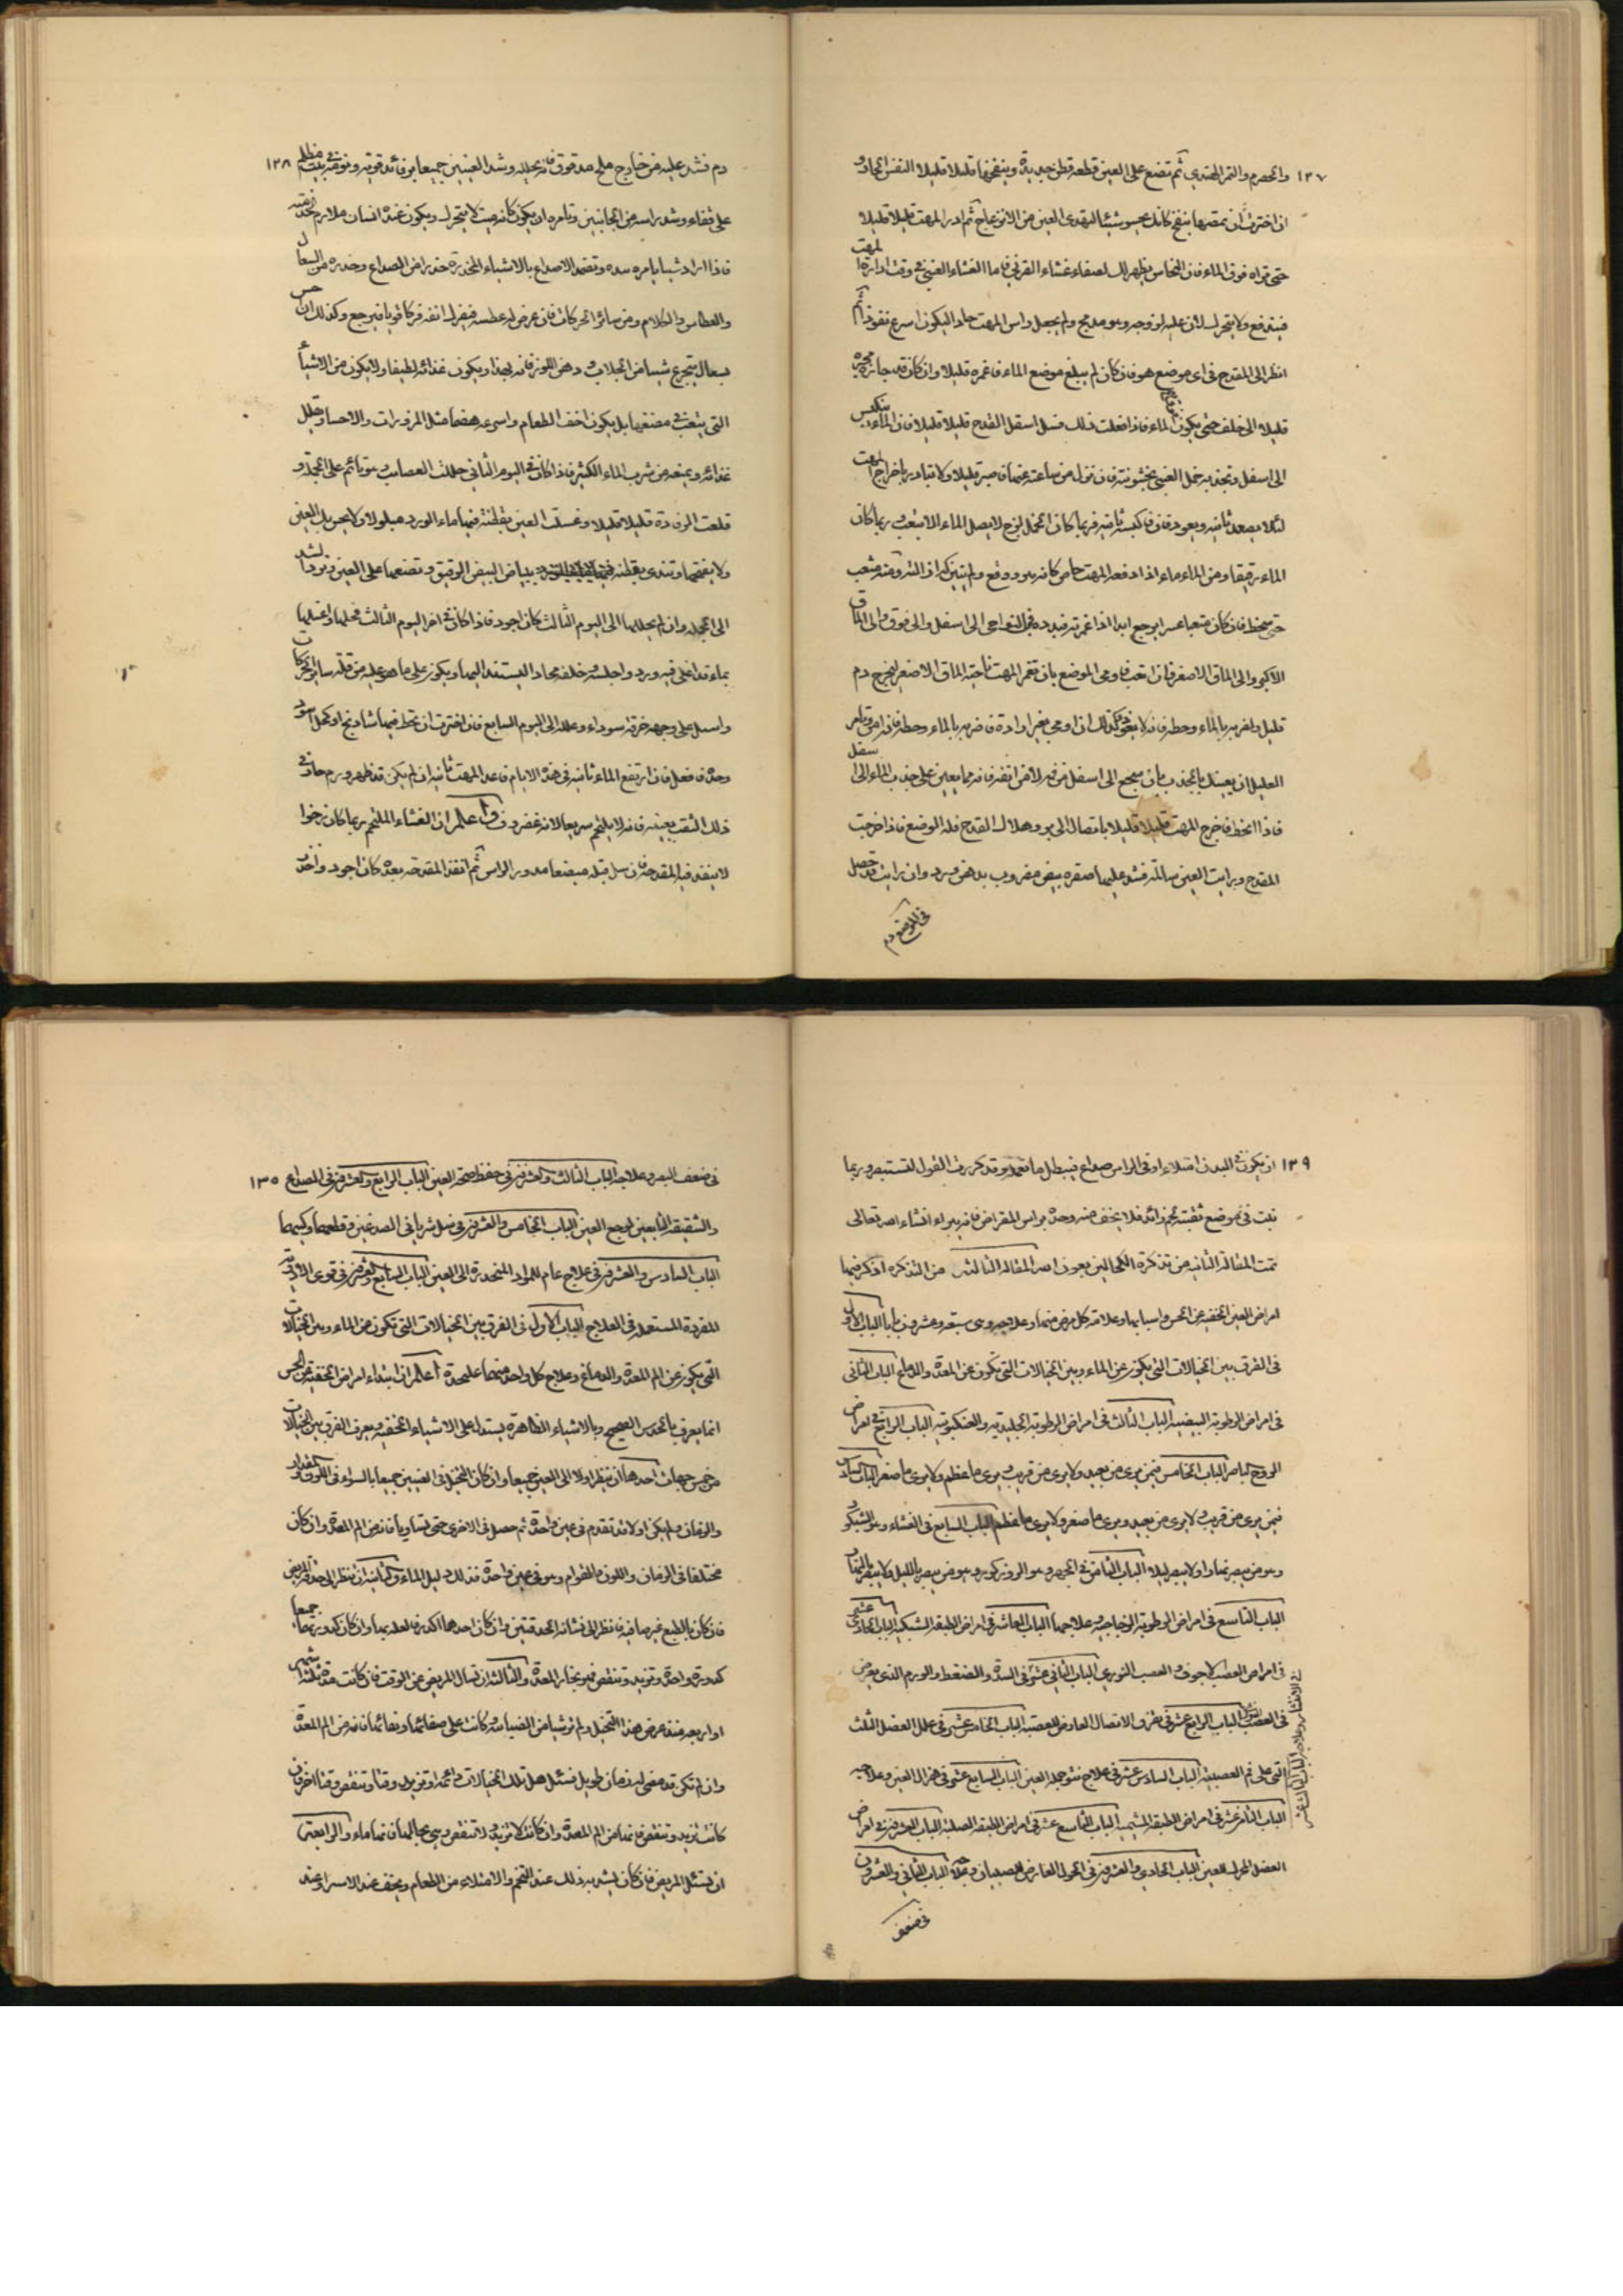 ١٣٧ والحصرم والتمر الهندي ثم تضع على العين قطعه قطن جديدة وينفخها قليلا قليلا النفس الحاد و
ان اخترت ان بمصرها بنفخ كانك يحس شيئا لتهدى العين من الانزعاج ثم ادر المهت قليلا قليلا
حتى تراه فوق الماء فان النحاس يظهر لك لصفاء غشاء القرني فاما الغشاء العنبي في وقت ادارة المهت
فيندفع ولا يتحرك لان عليه لزوجه وهو مدمج ولم يجعل راس المهت حاد ليكون اسرع نفوذ ثم
انظر الى المقدح في اى موضع هو فان كان لم يبلغ موضع الماء فاغمره قليلا وان كان قد جازه فجره
قليلا الى خلف حتى يكون فوق الماء فاذا فعلت ذلك فشل اسفل القدح قليلا قليلا فان الماء ينكبس
الى اسفل وتجذبه خمل العنبي بخشونته فان نزل من ساعته غمها فاصبر قليلا ولا تبادر باخراج المهت
لئلا يصعد ثانيه ويعود فان فاكبسه ثانيه فربما كان الخمل لزج لا يصل الماء الا بتعب وربما كان
الماء رقيقا ومن الماء ماء اذا دفعه المهت خاص كانه هو ووقع ولم يتبين كدر اذ الثرو منه متعب
حتى ينحط فان كان متعبا عسر يرجع ابدا اذا غمرته فبدده في النواحي الى اسفل والى فوق والى الماق
الاكبر والى الماق الاصغر فان اتعب فاومى الموضع بان تغمر المهت ناحيه الماق الاصغر ليخرج دم
قليل واضربه بالماء وحطه فانه لا يعود وكذلك ان اومى بغير ارادة فاضربه بالماء وحطه فانه امن وتامر
العليل ان يعينك بالجذب بان يجمع الى اسفل من فيه لا من انفه فانه مما يعين على جذب الماء الى سفل
فاذا انحط فاخرج المهت قليلا قليلا باتصال الى برو هلاك القدح فله الوضع فاذا خرجت
المقدح ورايت العين سالمة فشد عليها صفره بيض مضروب بدهن ورد وان رايت قد حصل
في الموضع دم
دم فشد عليه من خارج ملح مدقوق فانه يحلله وشد العينين جميعا برفائد قويه ونومه في بيت مظلم ١٣٨
على قفاه وشد راسه من الجانبين وتامره ان يكون كانه ميت لا يتحرك ويكون عنده انسان ملازم لخدمته
فاذا اراد شيا يامره بيده وتضمد الاصداغ بالاشياء المخدرة حذرا من الصداع وحذره من السعال
والعطاس والكلام ومن سائر الحركات فان عرض له عطسه فيفرك انفه فركا قويا فيرجع وكذلك ان حس
بسعال يتجرع شيا من الجلاب و دهن اللوز فانه يهدا ويكون غذائه لطيفا ولا يكون من الاشياء
التي يتعب في مضغها بل يكون اخف الطعام واسرعه هضما مثل المزورات والاحسا وتقلل
غذائه ويمنعه من شرب الماء الكثير فاذا كان في اليوم الثاني حللت العصايب وهو نائم على الجمله و
قلعت الرفادة قليلا قليلا وغسلت العين بقطنة فيها ماء الورد مبلولا ولا يحس بل العين
ولا يفتحها وتندى بقطنه ببياض البيض الرقيق وتضعها على العين وترد الشد
الى الجمله وان لم يحللها الى اليوم الثالث كان اجود فاذا كان في اخر اليوم الثالث فحلها واغسلها
بماء قد اغلى فيه ورد واجلسه وخلفه مخاد اليستند اليها ويكون على ما هو عليه من قله ساير الحركات
واسبل على وجهه خرقه سوداء وعلله الى اليوم السابع فان اخترت ان تحط فيها شاذنج او كحل اسود
وحده فافعل فان ارتفع الماء ثانيه في هذه الايام فاعد المهت ثانيه ان لم يكن قد ظهر ورم حار في
ذلك الثقب بعينه فانه لا يلتحم سريعا لانه غضروف واعلم ان الغشاء الملتحم ربما كان رخوا
لا ينفذ فيه المقدحه فارسل قبله مبضعا مدور الراس ثم انفذ المقدحه بعده كان اجود واحذر
١٣٩ ان يكون في البدن امتلاء او في الراس صداع فيبطل ما تعمله وقد كررت القول لتستبصر وربما
نبت في موضع ثقبته لحم زائد فلا يخف منه وحده براس المقراض فانه يبراء انشاء الله تعالى
تمت المقالة الثانيه من تذكرة الكحالين بعون الله المقالة الثالثه من التذكره اذكر فيها
امراض العين الخفيه عن الحس واسبابها وعلامة كل مرض منها وعلاجه وهى سبعه وعشرون بابا الباب الاول
في الفرق بين الخيالات التي يكون عن الماء وبين الخيالات التي تكون عن المعدة والدماغ الباب الثاني
في امراض الرطوبة البيضيه الباب الثالث في امراض الرطوبة الجليديه والعنكبوتيه الباب الرابع في امراض
الروح الباصر الباب الخامس فيمن يرى من بعيد ولا يرى من قريب ويرى ما عظم ولا يرى ما صغر الباب السادس
فيمن يرى من قريب ولا يرى من بعيد ويرى ما صغر ولا يرى ما عظم الباب السابع في العشاء وهو الشبكور
وهو من يبصر نهارا ولا يبصر ليلا الباب الثامن في الجهر وهو الروز كور وهو من يبصر بالليل ولا يبصر بالنهار
الباب التاسع في امراض الرطوبة الزجاجيه وعلاجها الباب العاشر في امراض الطبقه الشبكيه الباب الحادى عشر
في امراض العصب الاجوف و العصب النورى الباب الثاني عشر في السدة والضغط والورم الذى يعرض
في العصب الباب الرابع عشر في تفرق الاتصال العارض للعصبه الباب الخامس عشر في علل العضل الثلث
التي على فم العصبيه الباب السادس عشر في علاج نتو جمله العين الباب السابع عشر في هزال العين وعلاجه
الباب الثامن عشر في امراض الطبقه المشيميه الباب التاسع عشر في امراض الطبقه الصلبه الباب العشرون في امراض
العضل المحرك للعين الباب الحادي والعشرون في الحول العارض للصبيان وعلاجه الباب الثاني والعشرون
في ضعف
في ضعف البصر وعلاجه الباب الثالث والعشرون في حفظ صحة العين الباب الرابع والعشرون في الصداع ١٣٥
والشقيقه التابعين لوجع العين الباب الخامس والعشرون في سل شرياني الصدغين وقطعهما وكيهما
الباب السادس والعشرون في علاج عام للمواد المنحدرة الى العين الباب السابع والعشرون في قوى الادوية
المفردة المستعمله في العلاج الباب الاول في الفرق بين الخيالات التي تكون من الماء وبين الخيالات
التي يكون عن الم المعدة والدماغ وعلاج كل واحد منهما عليحدة اعلم ان ابتداء امراض الخفيه عن الحس
انما يعرف بالحدس الصحيح وبالاشياء الظاهرة يستدل على الاشياء الخفيه ويعرف الفرق بين الخيالات
من خمس جهات احدها ان ينظر اولا الى العين جميعا وان كان التخيل في العينين جميعا بالسواء في اللون والمقدار
والزمان ولم يكن اولا قد تقدم في عين واحدة ثم حصل في الاخرى حتى تساويا فانه من الم المعدة وان كان
مختلفا في الزمان واللون والقوام وهو في عين واحدة فذلك دليل الماء والثانيه ان تنظر الى حدقه المريض
فان كان بالطبع غير صافيه فانظر الى نشانه الحدقتين فان كان احدهما اكدر فالعله بدا وان كان كدورتهما جميعا
كدورة واحدة وتزيد وتنقص فهو بخار المعدة والثالثه ان تسال المريض عن الوقت فان كانت مدة ثلثه اشهر
او اربعه منذ عرض هذا التخيل ولم تر شيا من الضبابيه وكانت على صفائها ونقائها فانه من الم المعدة
وان لم تكن قد مضى له زمان طويل فسئل هل تلك الخيالات دائمة او تزيد وقتا وتنقص وقتا اخر فان
كانت تزيد وتنقص فانها من الم المعدة وان كانت لا تزيد ولا تنقص وهي بحالها فانها ماء والرابعة
ان تسئل المريض فان كان يشتد به ذلك عند التخم والامتلاء من الطعام ويخف عند الاسراء وعند